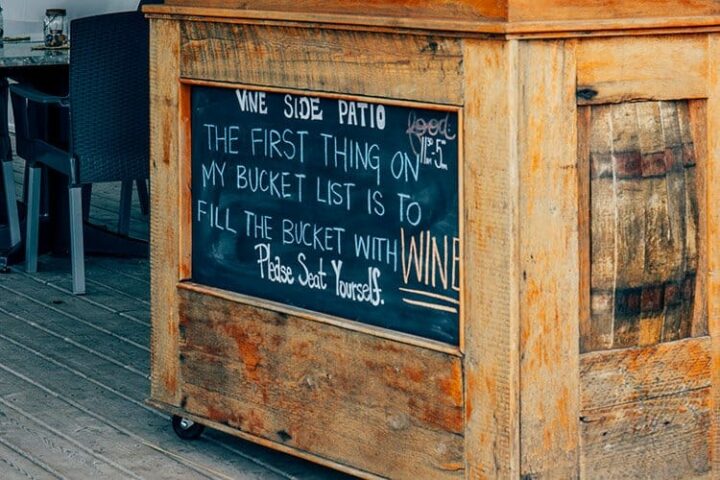 VINE SIDE PATIO
food
11³⁰-5
THE FIRST THING ON
MY BUCKET LIST IS TO
FILL THE BUCKET WITH WINE
Please Seat Yourself.